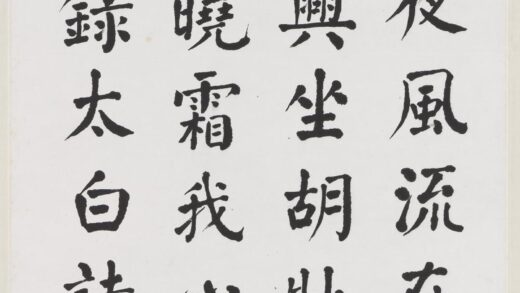 夜風流在
興坐胡牀
曉霜我
錄太白詩